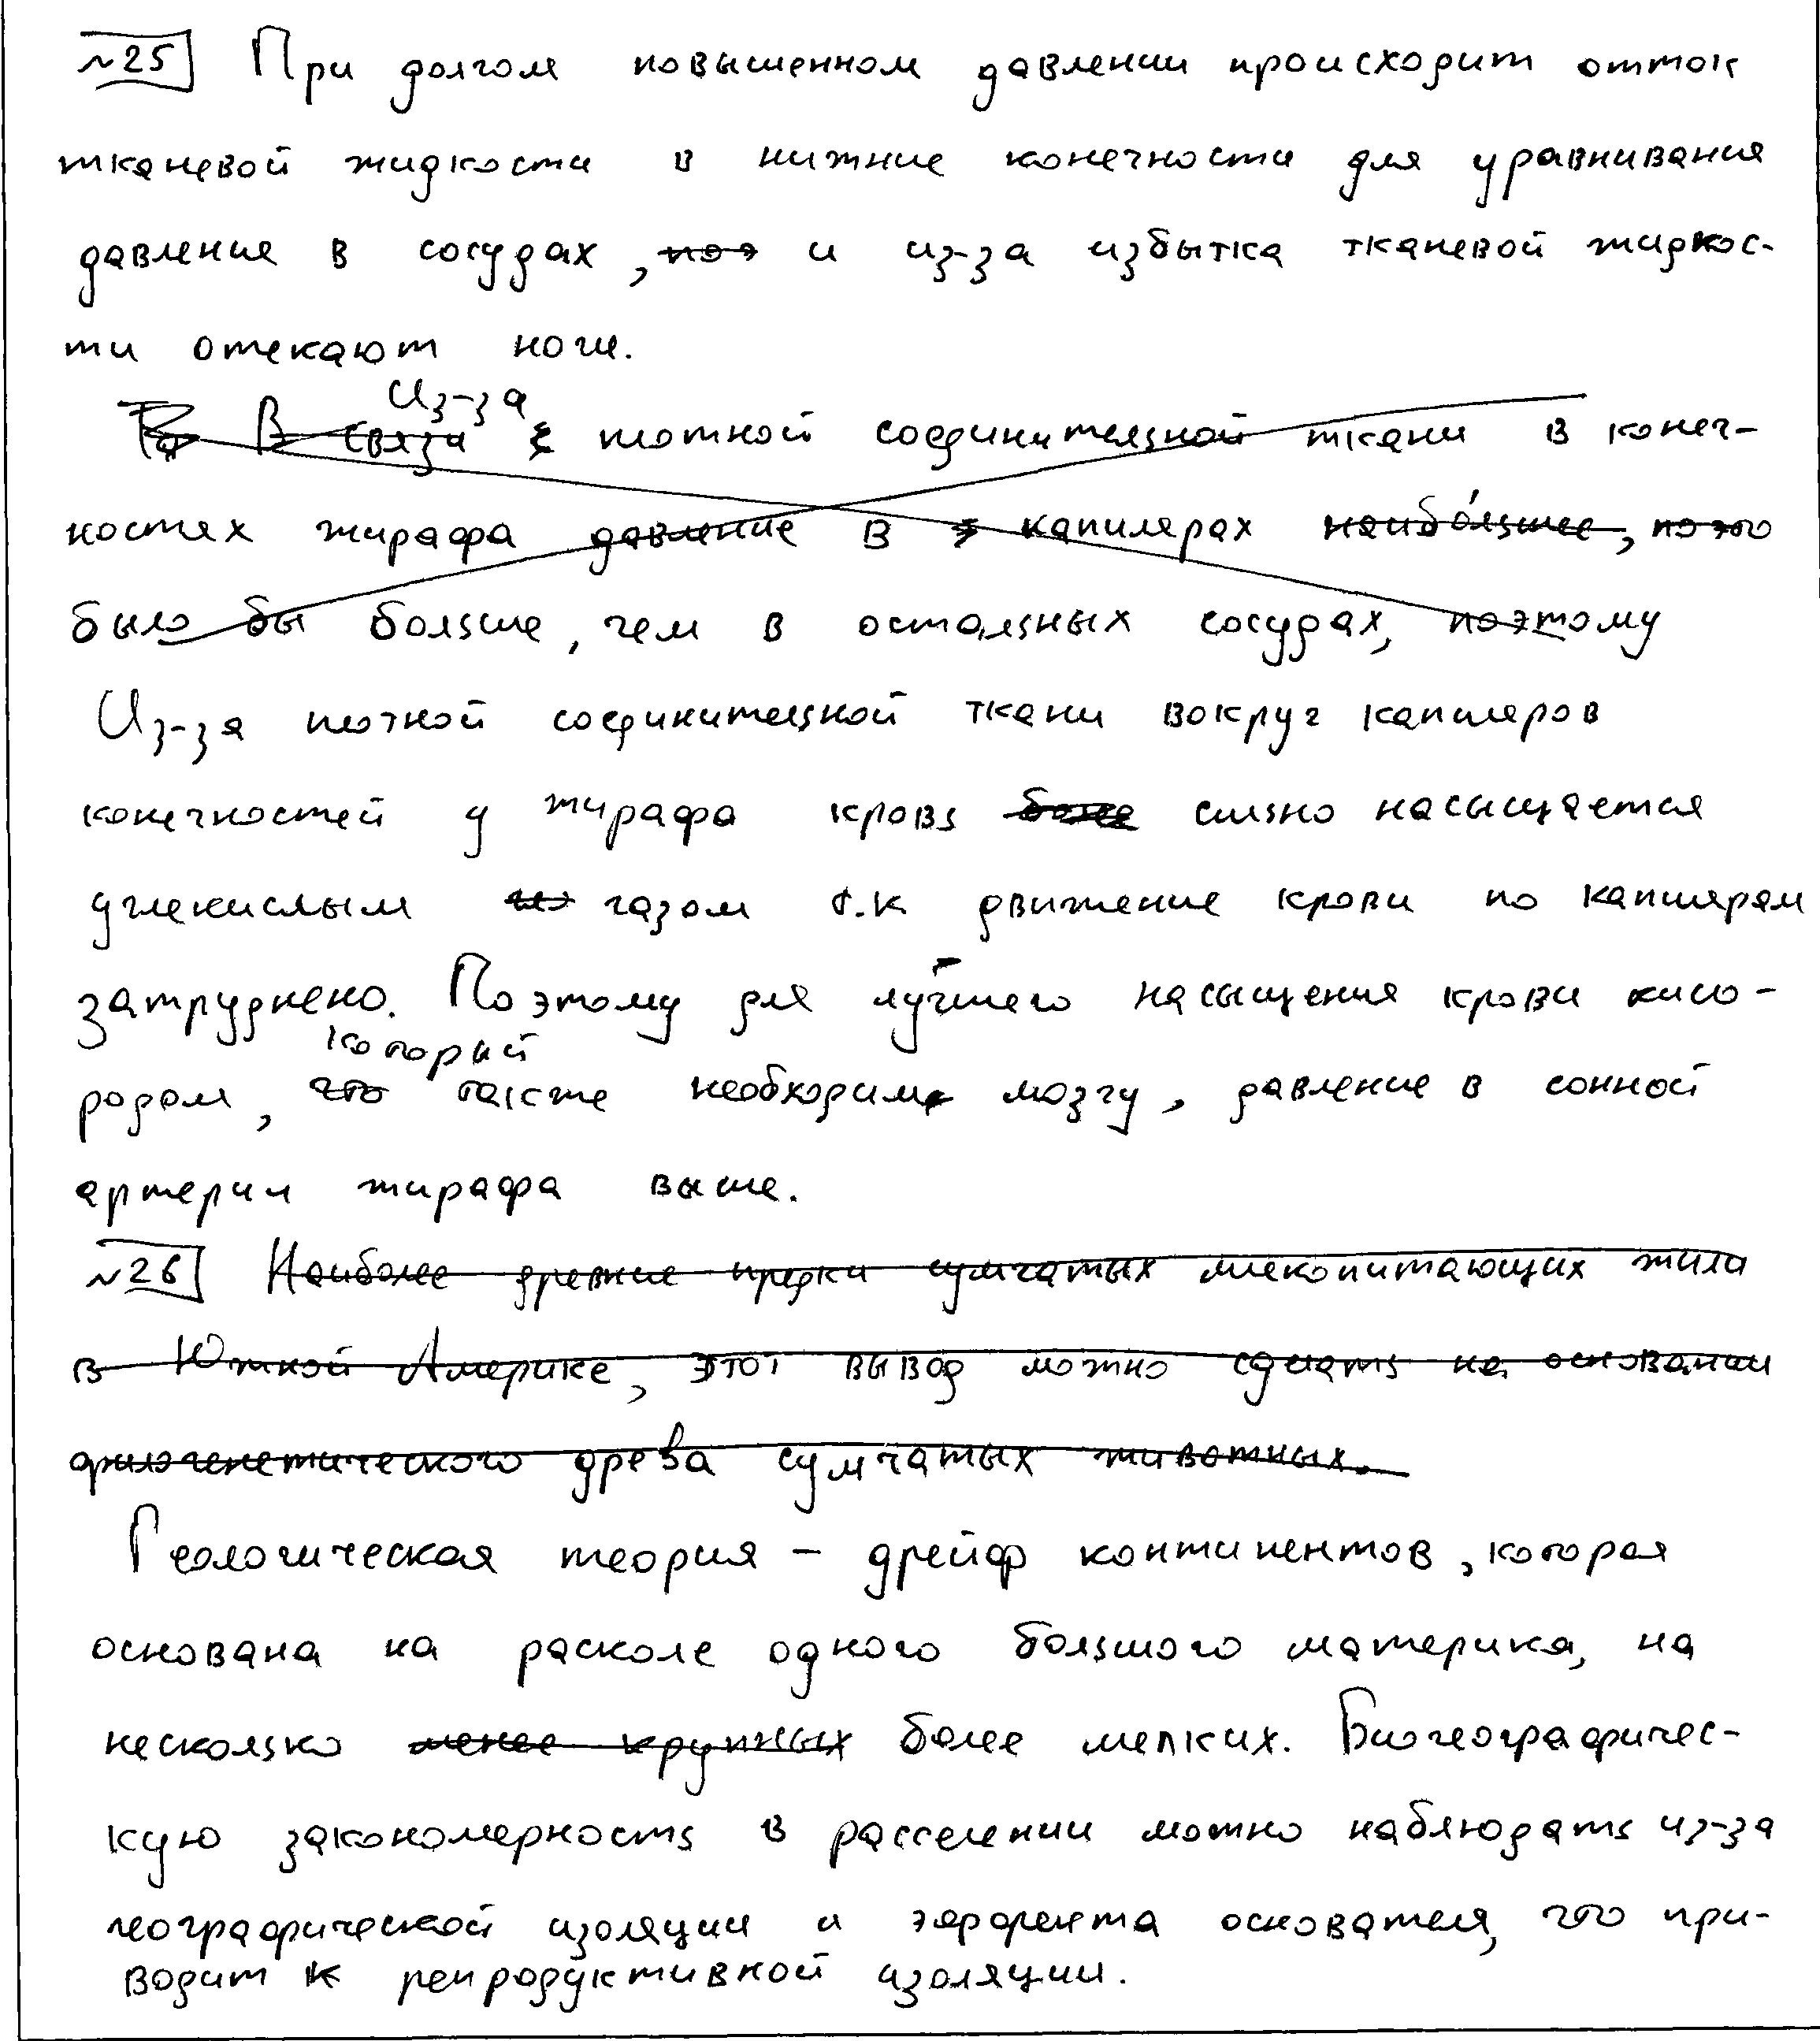 №25 При долгом повышенном давлении происходит отток
тканевой жидкости в нижние конечности для уравнивания
давление в сосудах, поэ и из-за избытка тканевой жидкос-
ти отекают ноги.
Из-за
В связи с плотной соединительной ткани в конеч-
ностях жирафа давление в капилярах наибольшее, поэто
было бы больше, чем в остальных сосудах, поэтому
Из-за плотной соединительной ткани вокруг капиляров
конечностей у жирафа кровь более сильно насыщается
углекислым газом т.к движение крови по капилярам
затруднено. Поэтому для лучшего насыщения крови кисло-
который
родом, что также необходим мозгу, давление в сонной
артерии жирафа выше.
№26 Наиболее древние предки сумчатых млекопитающих жили
в Южной Америке, этот вывод можно сделать на основании
филогенетического древа сумчатых животных.
Геологическая теория – дрейф континентов, которая
основана на расколе одного большого материка, на
несколько менее крупных более мелких. Биогеографичес-
кую закономерность в расселении можно наблюдать из-за
географической изоляции и эффекта основателя, что при-
водит к репродуктивной изоляции.